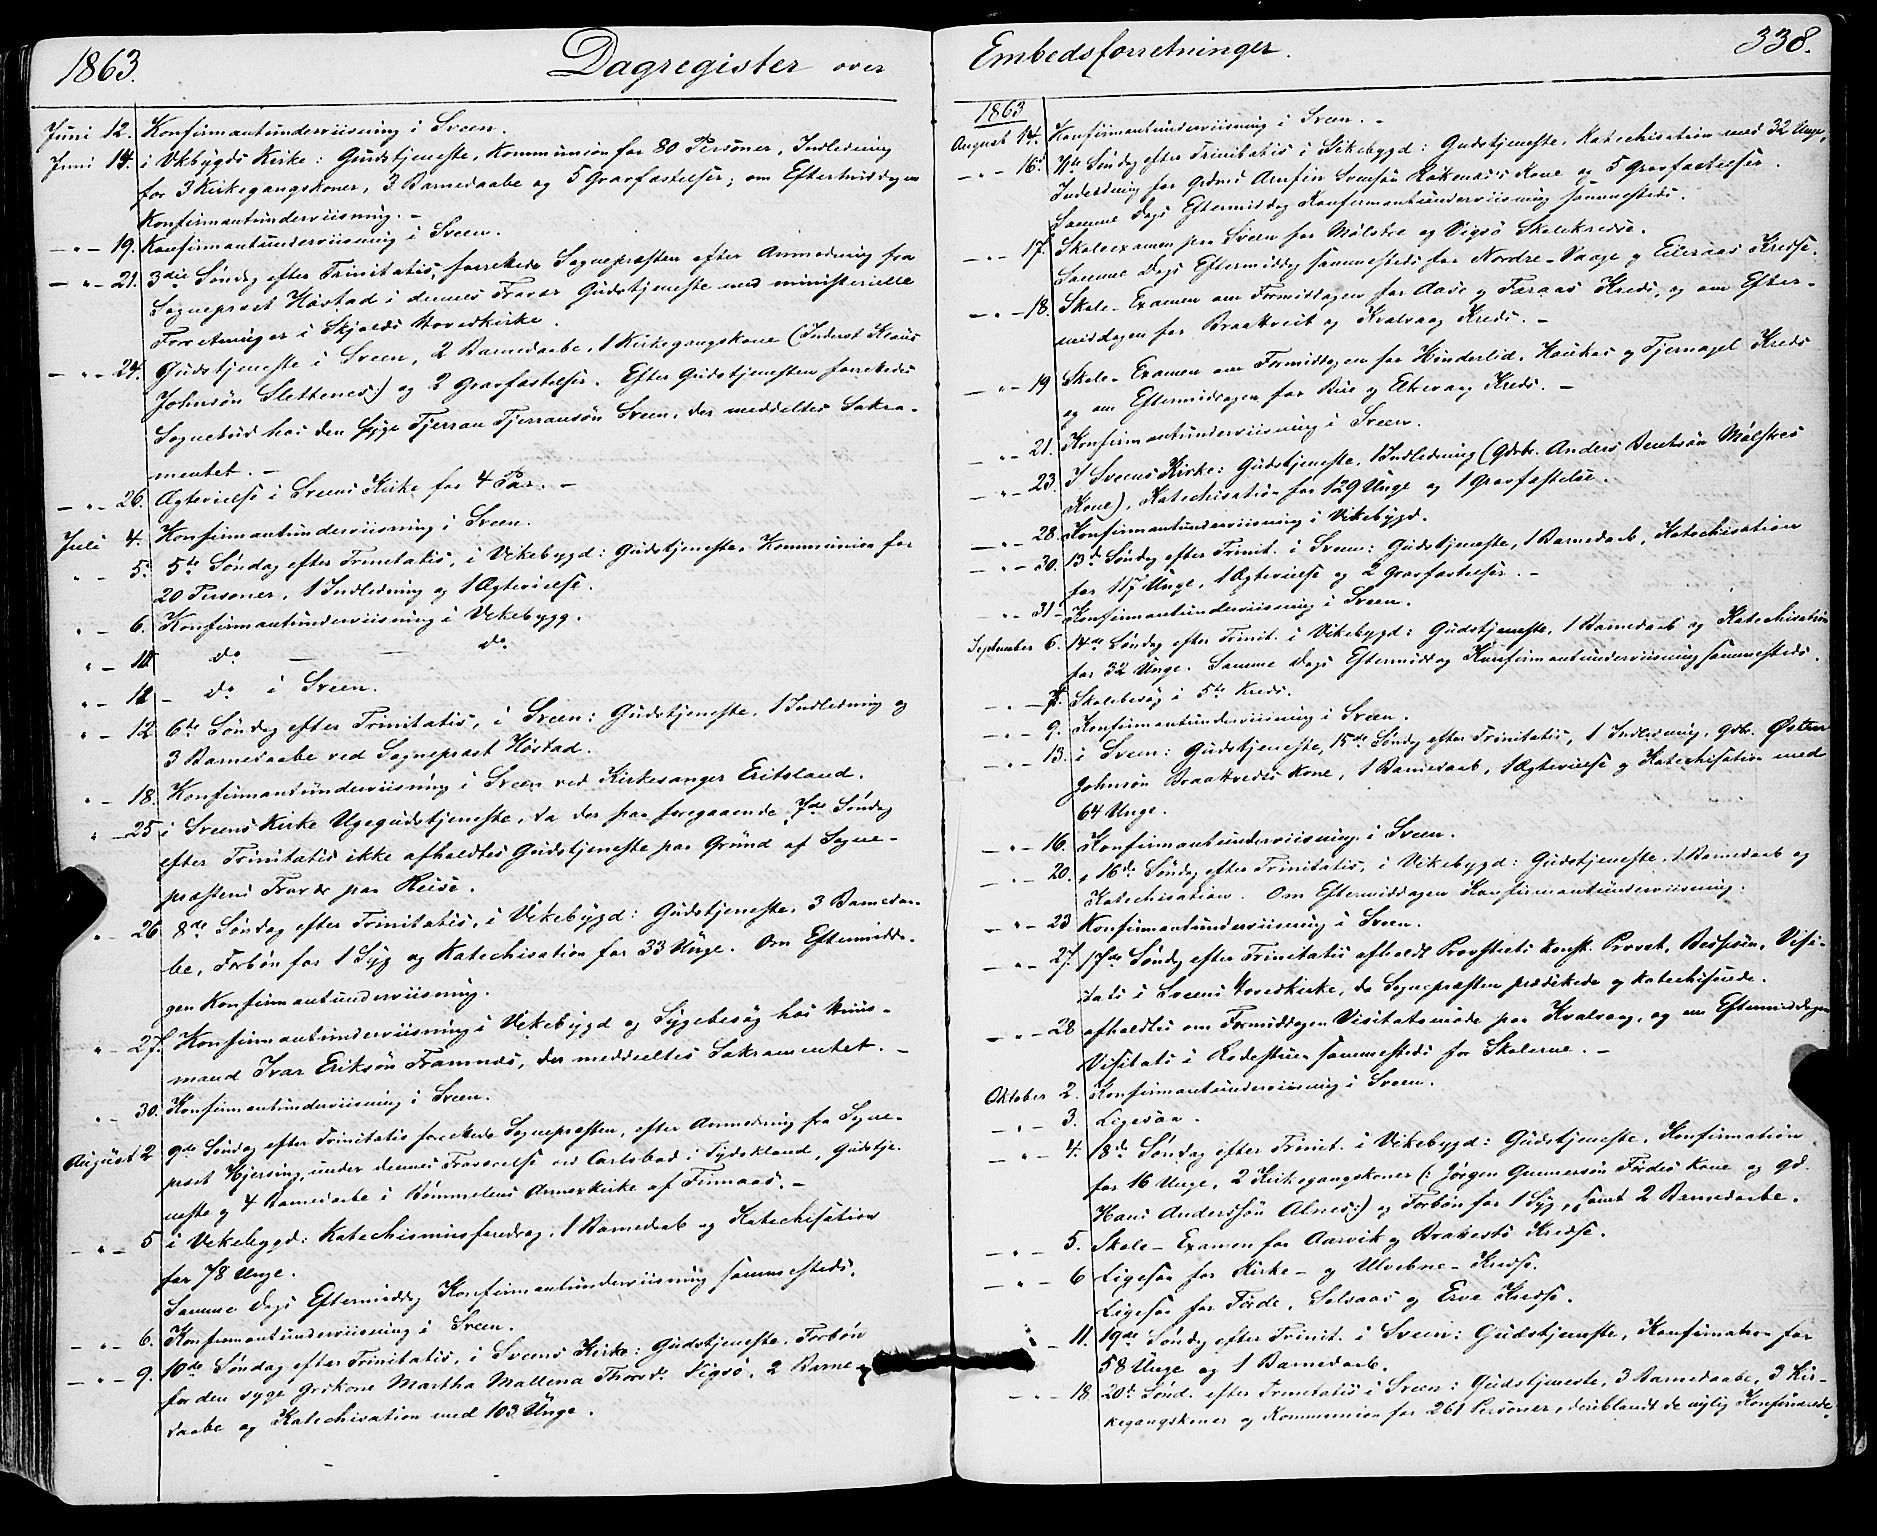 1863. Dagregister over
Juni 12. Konfirmantunderviisning i Sveen.
Juni 14. i Vikebygds Kirke: Gudstjeneste, Kommunion for 80 Personer, Indledning
for 3 Kirkegangskoner, 3 Barnedaabe og 5 Gravfæstelser; om Eftermiddagen
Konfirmantunderviisning. –
– " – 19. Konfirmantunderviisning i Sveen.
– " – 21. 3die Søndag efter Trinitatis, forrettede Sognepræsten efter Anmodning fra
Sogneprest Høstad i dennes Fravær Gudstjeneste med ministerielle
Forretninger i Skjolds Hovedkirke.
– " – 24. Gudstjeneste i Sveen, 2 Barnedaabe, 1 Kirkegangskone (Inderst Klaus
Johnsøn Slettenes:) og 2 Gravfæstelser. Efter Gudstjenesten forrettedes
Sognebud hos den syge Tjerran Tjerransøn Sveen, der meddeltes Sakra-
mentet. –
– " – 26. Ægtevielse i Sveens Kirke for 4 Par. –
Juli 4. Konfirmantunderviisning i Sveen.
" – 5. 5te Søndag efter Trinitatis, i Vikebygd: Gudstjeneste, Kommunion for
20 Personer, 1 Indledning og 1 Ægtevielse.
" – 6. Konfirmantunderviisning i Vikebygg.
" – 10. do – – do
" – 11 – do i Sveen.
" – 12. 6te Søndag efter Trinitatis, i Sveen: Gudstjeneste, 1 Indledning og
3 Barnedaabe ved Sogneprest Høstad.
" – 18. Konfirmantunderviisning i Sveen ved Kirkesanger Eritsland.
" – 25 i Sveens Kirke Ugegudstjeneste, da der paa foregaaende 7de Søndag
efter Trinitatis ikke afholdtes Gudstjeneste paa Grund af Sogne-
præstens Fravær paa Reise.
" – 26 8de Søndag efter Trinitatis, i Vikebygd: Gudstjeneste, 3 Barnedaa-
be, Forbøn for 1 Syg og Katechisation for 33 Unge. Om Eftermidda-
gen Konfirmantunderviisning.
" – 27. Konfirmantunderviisning i Vikebygd og Sygebesøg hos Huus-
mand Ivar Eriksøn Framnæs, der meddeeltes Sakramentet. –
" – 30. Konfirmantunderviisning i Sveen.
August 2 9de Søndag efter Trinitatis forrettede Sognepræsten, efter Anmodning fra Sogne-
prest Hjorsing, under dennes Fraværelse ved Carlsbad i Tydskland, Gudstje-
neste og 4 Barnedaabe i Bømmelens Annexkirke af Finnaas. –
– " – 5 i Vikebygd: Katechismusforedrag, 1 Barnedaab og Katechisation
for 78 Unge.
Samme Dags Eftermiddag Konfirmantunderviisning sammesteds.
– " – 6. Konfirmantunderviisning i Sveen.
– " – 9. 10de Søndag efter Trinitatis, i Sveens Kirke: Gudstjeneste, Forbøn
for den syge Grdkone Martha Mallena Thorsd. Vigsø, 2 Barne-
daabe og Katechisation med 103 Unge.
Embedsforretninger. 338.
1863
August 14. Konfirmantunderviisning i Sveen. –
– " – 16. 11te Søndag efter Trinitatis i Vikebygd: Gudstjeneste, Katechisation med 32 Unge,
Indledning for Grdmd Arnfin Svensøn Røkenæs's Kone og 5 Gravfæstelser.
Samme Dags Eftermiddag Konfirmantunderviisning sammesteds.
– " – 17. Skoleexamen paa Sveen for Mølstre og Vigsø Skolekredse.
Samme Dags Eftermiddag sammesteds for Nordre-Vaage og Eileraas Kredse.
– " – 18. Skole-Examen om Formiddagen for Aase og Taraas Kreds, og om Efter-
middagen for Braatveit og Kvalvaag Kreds. –
– " – 19 Skole-Examen om Formiddagen for Hinderlid, Haukas og Tjernagel Kreds
og om Eftermiddagen for Bue og Ekevaag Kreds. –
– " – 21. Konfirmantunderviisning i Sveen.
– " – 23. I Sveens Kirke: Gudstjeneste, 1 Indledning (Gdbr. Anders Bentsøn Mølstres
Kone), Katechisation for 129 Unge og 1 Gravfæstelse.
– " – 28. Konfirmantunderviisning i Vikebygd.
– " – 30. 13d Søndag efter Trinit. i Sveen: Gudstjeneste, 1 Barnedaab, Katechisation
for 117 Unge, 1 Ægtevielse og 2 Gravfæstelser. –
" – 31 – Konfirmantunderviisning i Sveen.
September 6. 14de Søndag efter Trinit. i Vikebygd: Gudstjeneste, 1 Barnedaab og Katechisation
for 32 Unge. Samme Dags Eftermiddag Konfirmantunderviisning sammesteds.
– " – 7. Skolebesøg i 5te Kreds.
– " – 9. Konfirmantunderviisning i Sveen.
– " – 13. i Sveen: Gudstjeneste, 15de Søndag efter Trinitatis, 1 Indledning, Gdbr. Østen
Johnsøn Braatvedts Kone, 1 Barnedaab, 1 Ægtevielse og Katechisation med
64 Unge.
– " – 16. Konfirmantunderviisning i Sveen.
– " – 20. 16de Søndag efter Trinitatis, i Vikebygd: Gudstjeneste, 1 Barnedaab og
Katechisation. Om Eftermiddagen Konfirmantunderviisning.
– " – 23 Konfirmantunderviisning i Sveen.
– " – 27. 17de Søndag efter Trinitatis afholdt Provstiets konst. Provst, Visi-
tats i Sveens Hovedkirke, da Sognepræsten prædikede og katechiserede.
– " – 28 afholdtes om Formiddagen Visitatsmøde paa Kvalvaag, og om Eftermiddagen
Visitats i Rodestuen sammesteds for Skolerne. –
Oktober 2. Konfirmantunderviisning i Sveen.
– " – 3. Ligesaa.
– " – 4. 18de Søndag efter Trinit. i Vikebygd: Gudstjeneste, Konfirmation
for 16 Unge, 2 Kirkegangskoner (: Jørgen Gunnersøn Førdes Kone og Gd.
Hans Anderssøn Alnes:) og Forbøn for 1 Syg, samt 2 Barnedaabe.
– " – 5. Skole-Examen for Aarvik og Brakests Kredse.
– " – 6 Ligesaa for Kirke- og Ulvebne-Kredse.
Ligesaa for Førde, Solvaas og Erve Kredse.
– 11. 19de Søndag efter Trinit. i Sveen: Gudstjeneste, Konfirmation for
58 Unge og 1 Barnedaab.
– " – 18. 20de Sønd. efter Trinitatis i Sveen: Gudstjeneste, 3 Barnedaabe, 3 Kir-
kegangskoner og Kommunion for 261 Personer, deriblandt de nylig Konfirmerede.